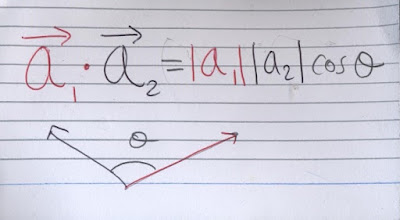 a⃗₁ · a⃗₂ = |a₁| |a₂| cos θ
θ